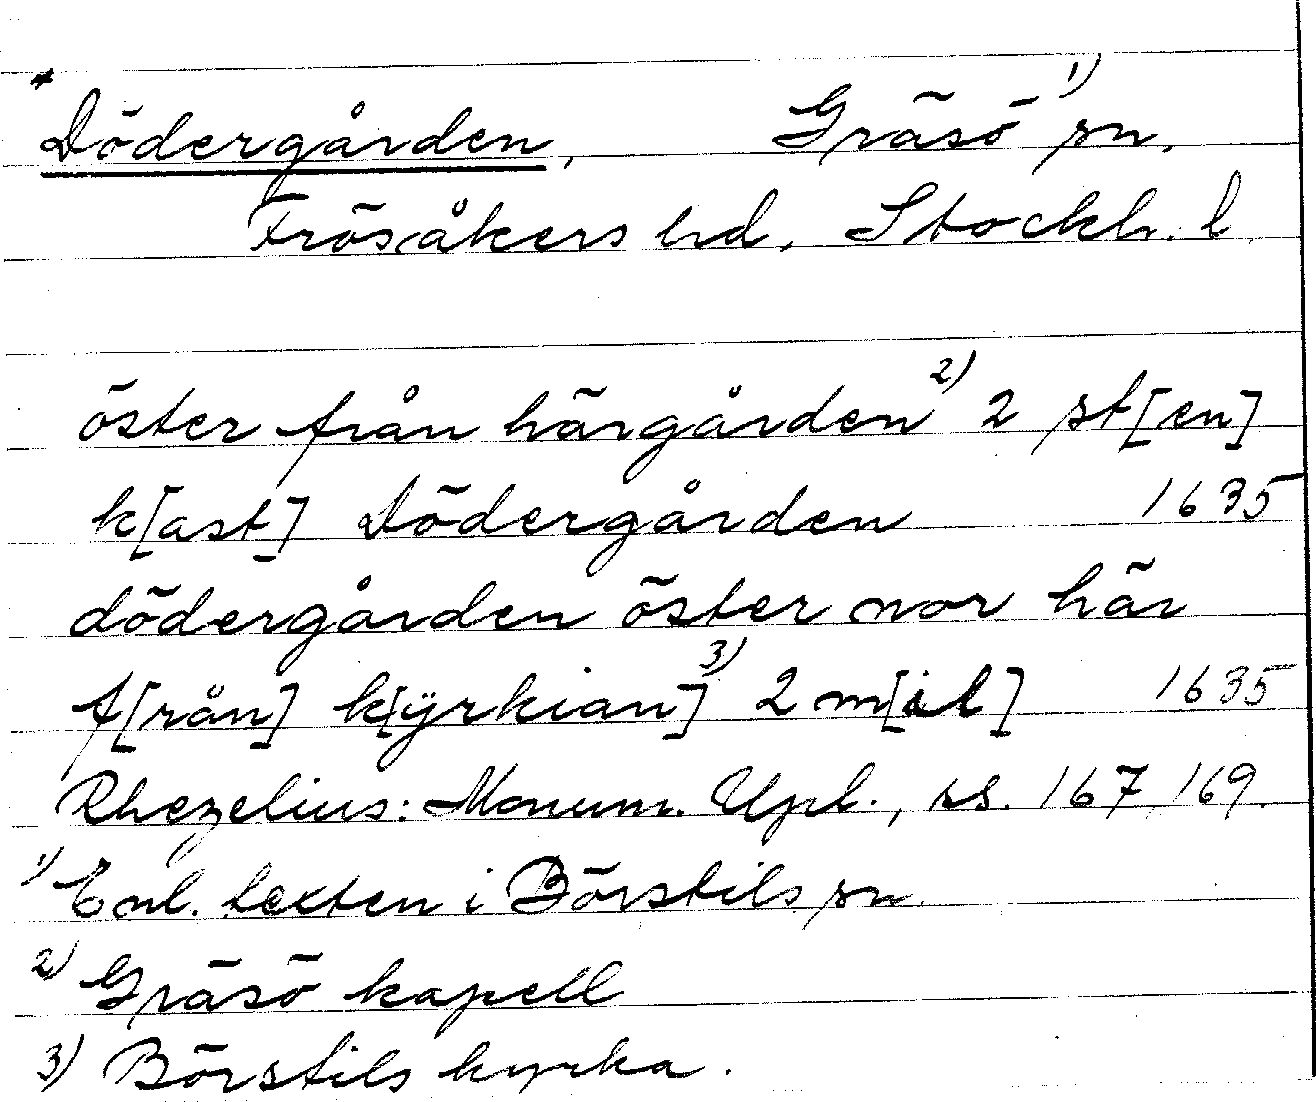 *Dödergården, Gräsö¹⁾ sn.
Frösåkers hd. Stockh. l
öster från härgården²⁾ 2 st[en]
k[ast] Dödergården 1635
dödergården öster nor här
f[rån] k[ÿrkian]³⁾ 2 m[il] 1635
Rhezelius: Monum. Upl., ss. 167, 169.
¹⁾ Enl. texten i Börstils sn.
²⁾ Gräsö kapell
³⁾ Börstils kyrka.